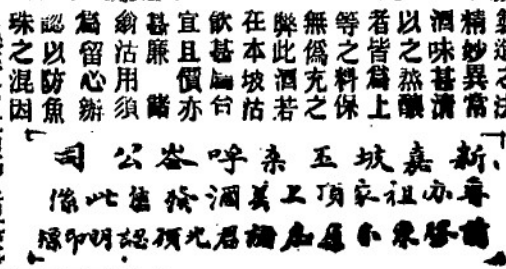 製造之法
精妙異常
酒味甚清
以之蒸釀
者皆爲上
等之料保
無僞充之
弊此酒若
在本坡沽
飲甚合
宜且價亦
甚廉 諸
翁沽用須
爲留心辦
認以防魚
珠之混因
新嘉坡玉呼峇公司
亦祖家頂上美酒發售此係
君光顧認明印